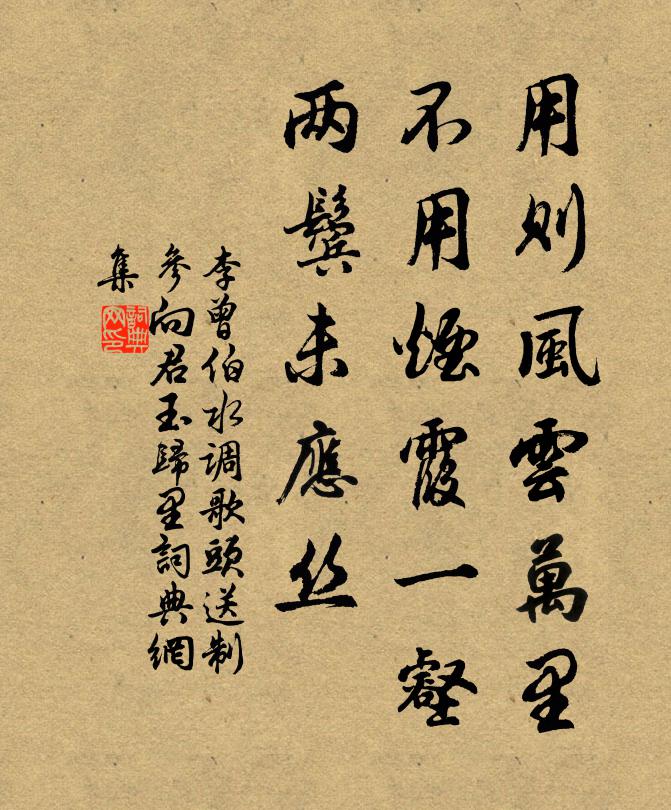 用则風雲萬里
不用煙霞一壑
两鬓未應丝
李曾伯水调歌頭送制
參向君玉歸里詞典網
集
詞典
网印